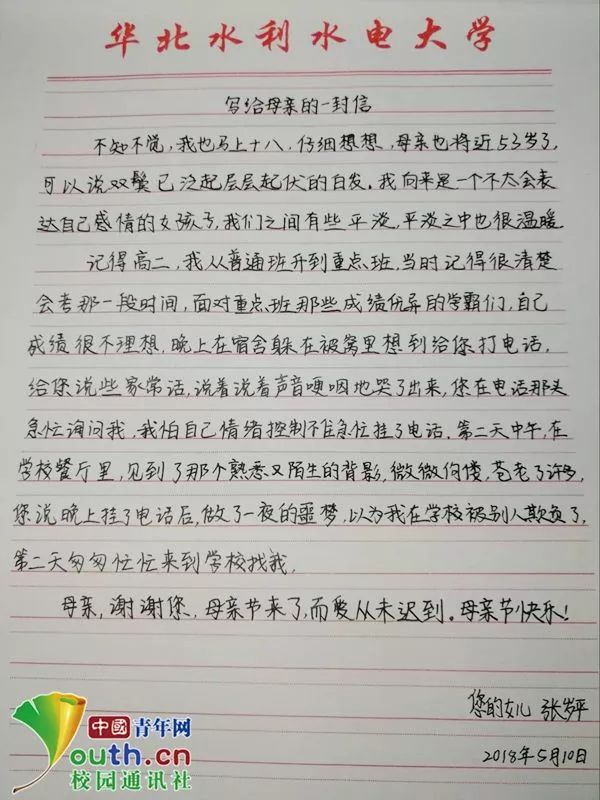 华北水利水电大学
写给母亲的一封信
不知不觉,我也马上十八,仔细想想,母亲也将近53岁了,
可以说双鬓已泛起层层起伏的白发。我向来是一个不太会表
达自己感情的女孩子,我们之间有些平淡,平淡之中也很温暖
记得高二,我从普通班升到重点班,当时记得很清楚
会考那一段时间,面对重点班那些成绩优异的学霸们,自己
成绩很不理想,晚上在宿舍躲在被窝里想到给您打电话,
给您说些家常话,说着说着声音哽咽地哭了出来,您在电话那头
急忙询问我,我怕自己情绪控制不住急忙挂了电话。第二天中午,在
学校餐厅里,见到了那个熟悉又陌生的背影,微微佝偻,苍老了许多,
您说晚上挂了电话后,做了一夜的噩梦,以为我在学校被别人欺负了,
第二天匆匆忙忙来到学校找我,
母亲,谢谢您,母亲节来了,而爱从未迟到。母亲节快乐!
您的女儿 张岁平
2018年5月10日
中國青年网
youth.cn
校园通讯社